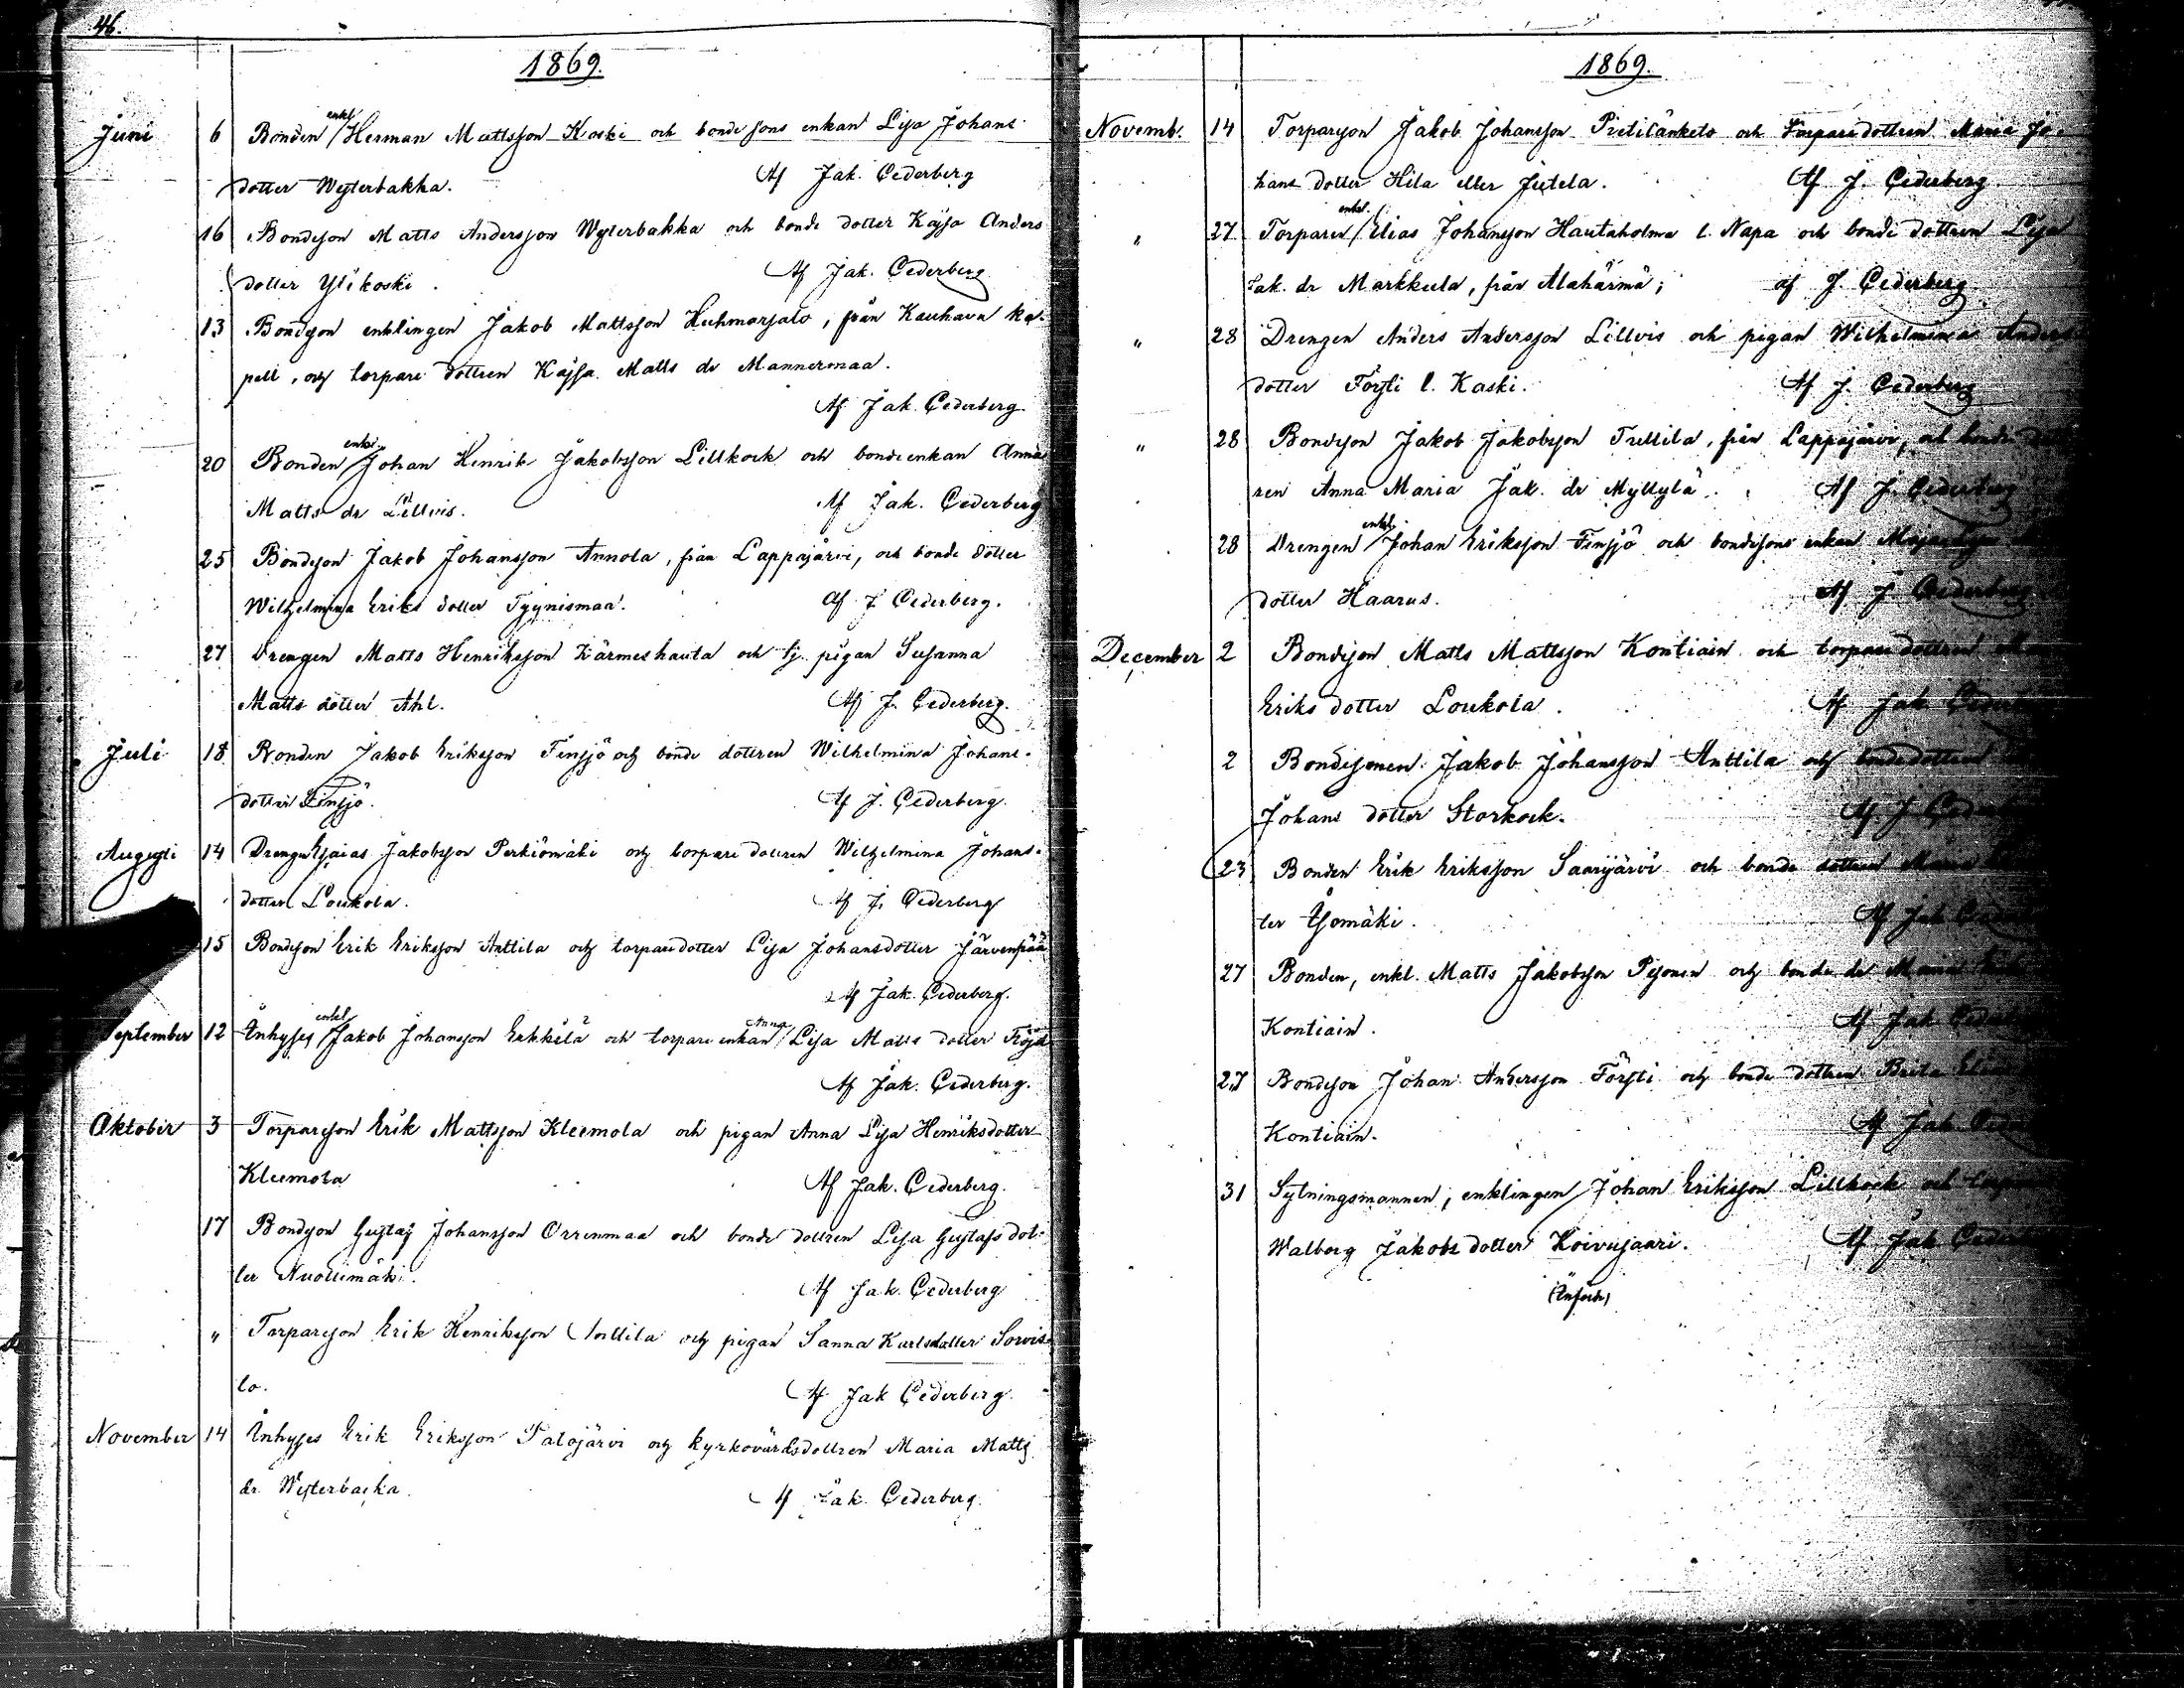 46.
1869.
Juni 6 Bonden enkl. Herman Mattsson Koski och bondesons enkan Lisa Johans
dotter Westerbakka. Af Jak. Cederberg
16 Bondeson Matts Andersson Westerbakka och bonde dotter Kajsa Anders
dotter Ylikoski. Af Jak. Cederberg
13 Bondeson enklingen Jakob Mattsson Huhmarsalo, från Kauhava ka-
pell, och torpare dottren Kajsa Matts dr Mannermaa.
Af Jak. Cederberg
20 Bonden enkl. Johan Henrik Jakobsson Lillkock och bondeenkan Anna
Matts dr Lillvis. Af Jak. Cederberg
25 Bondeson Jakob Johansson Annola, från Lappajärvi, och bonde dotter
Wilhelmina Eriks dotter Tyynismaa. Af J Cederberg.
27 Drengen Matts Henriksson Kärmeshauta och tj. pigan Susanna
Matts dotter Ahl. Af J. Cederberg.
Juli 18 Bonden Jakob Eriksson Finsjö och bonde dottren Wilhelmina Johans-
dotter Finsjö. Af J. Cederberg.
Augusti 14 Drengen Esaias Jakobsson Perkiömäki och torpare dottren Wilhelmina Johans-
dotter Loukola. Af J. Cederberg
15 Bondeson Erik Eriksson Anttila och torparedotter Lisa Johansdotter Järvenpää
Af Jak. Cederberg.
September 12 Inhyses enkl. Jakob Johansson Erkkilä och torpare enkan Anna Lisa Matts dotter Fröjd
Af Jak. Cederberg.
Oktober 3 Torpareson Erik Mattsson Kleemola och pigan Anna Lisa Henriksdotter
Kleemola Af Jak. Cederberg.
17 Bondeson Gustaf Johansson Orrenmaa och bonde dottren Lisa Gustafs dot-
ter Nuolimäki. Af Jak. Cederberg
" Torpareson Erik Henriksson Anttila och pigan Sanna Karlsdotter Sorvis-
to. Af Jak Cederberg.
November 14 Inhyses Erik Eriksson Patojärvi och kyrkovärdsdottren Maria Matts
dr. Westerbacka. Af Jak. Cederberg.
1869.
Novemb. 14 Torpareson Jakob Johansson Pietilänketo och Torparedottren Maria Jo-
hans dotter Hila eller Jutela. Af J. Cederberg.
" 27 Torparen enkl. Elias Johansson Hautaholma l. Napa och bonde dottren Lisa
Jak. dr Markkula, från Alahärmä; af J. Cederberg
" 28 Drengen Anders Andersson Lillvis och pigan Wilhelmina Anders
dotter Försti l. Kaski. Af J. Cederberg
" 28 Bondeson Jakob Jakobsson Trellila, från Lappajärvi, och bonde dott
ren Anna Maria Jak. dr Myllylä. Af J. Cederberg
28 Drengen enkl. Johan Eriksson Finsjö och bondesons enkan Maja Lisa
dotter Haarus. Af J Cederberg
December 2 Bondeson Matts Mattsson Kontiain och torpare dottren
Eriks dotter Loukola. Af Jak Ceder
2 Bondesonen Jakob Johansson Anttila och bondedottren
Johans dotter Storkock. Af J Ceder
23 Bonden Erik Eriksson Saarijärvi och bonde dottren Maria
ter Isomäki. Af Jak Ceder
27 Bonden, enkl. Matts Jakobsson Pesonen och bonde dr Maria
Kontiain. Af Jak Ceder
27 Bondeson Johan Andersson Försti och bonde dottren Brita
Kontiain. Af Jak Ceder
31 Sytningsmannen, enklingen Johan Eriksson Lillkock och
Walborg Jakobs dotter Koivusaari. Af Jak Ceder